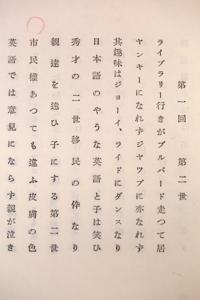 第一回　第二世
ライブラリー行きがブルバード走つて居
ヤンキーになれずジヤツプに亦なれず
其趣味はジヨーイ、ライドにダンスなり
日本語のやうな英語と子は笑ひ
秀才の二世移民の伜なり
親達を迷ひ子にする第二世
市民權あつても違ふ皮膚の色
英語では意見にならず親が泣き